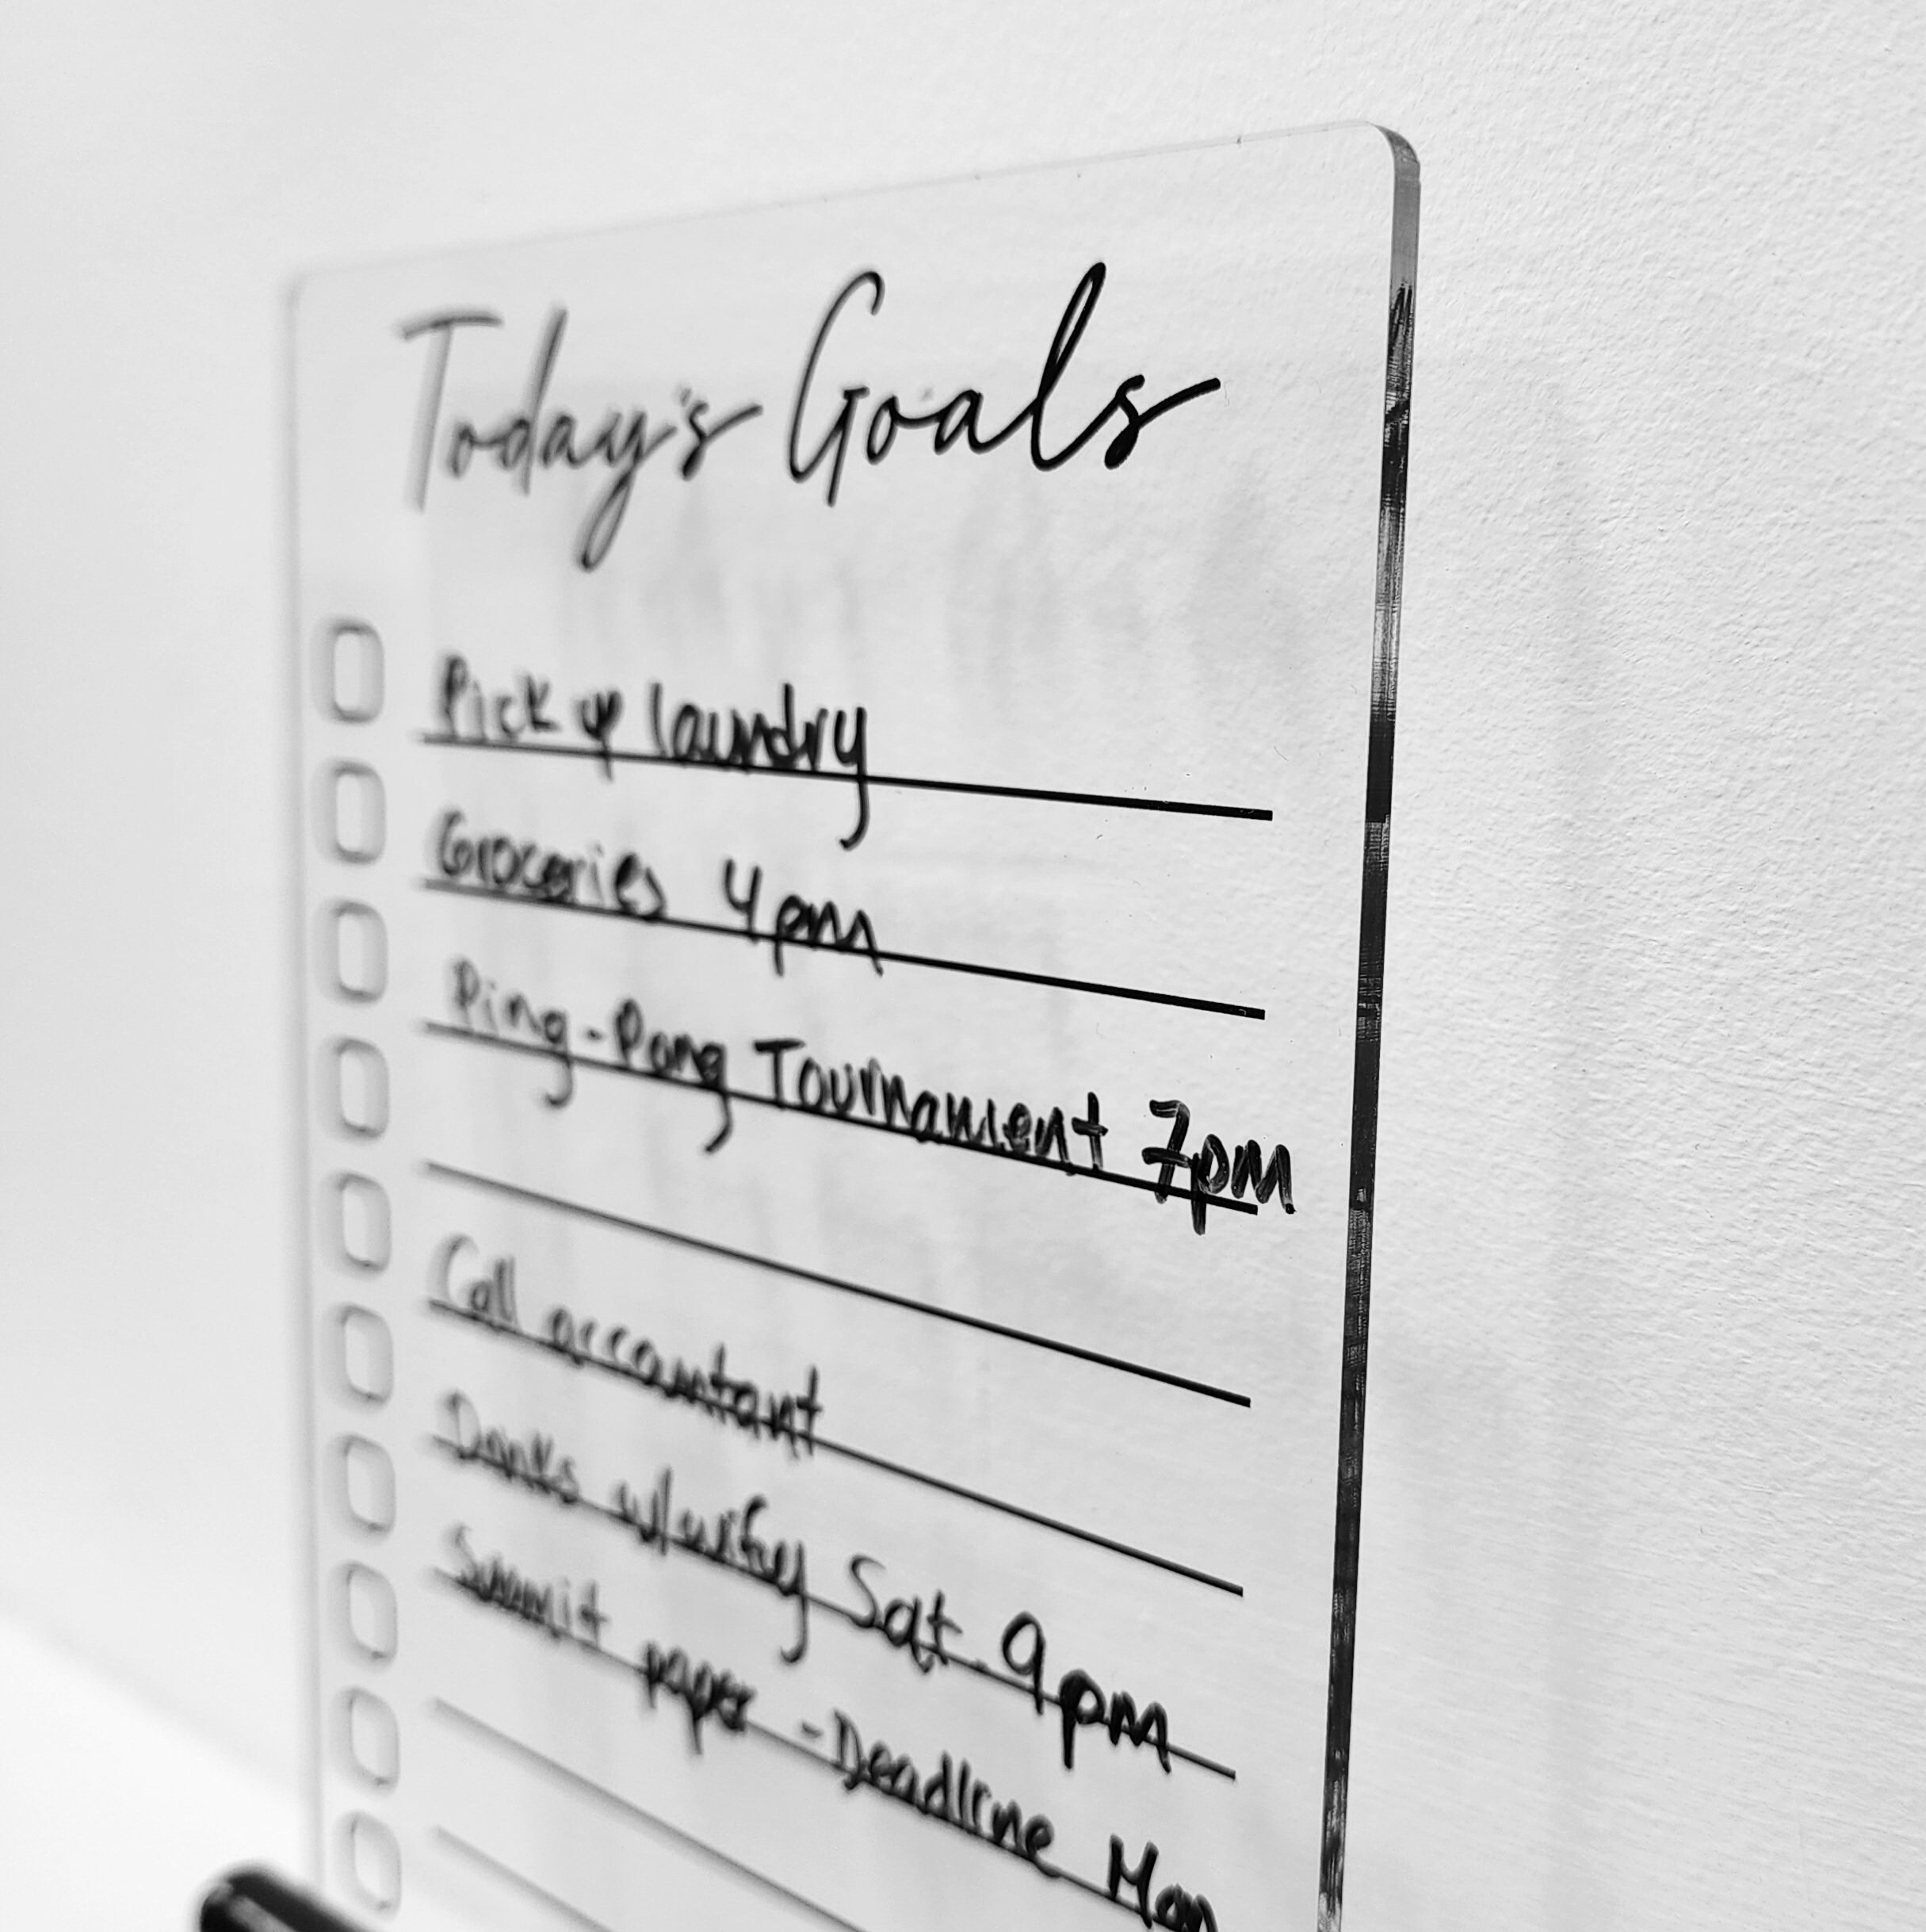 Today's Goals
Pick up laundry
Groceries 4pm
Ping-Pong Tournament 7pm
Call accountant
Drinks Sat. 9pm
Summit paper - Deadline Mon